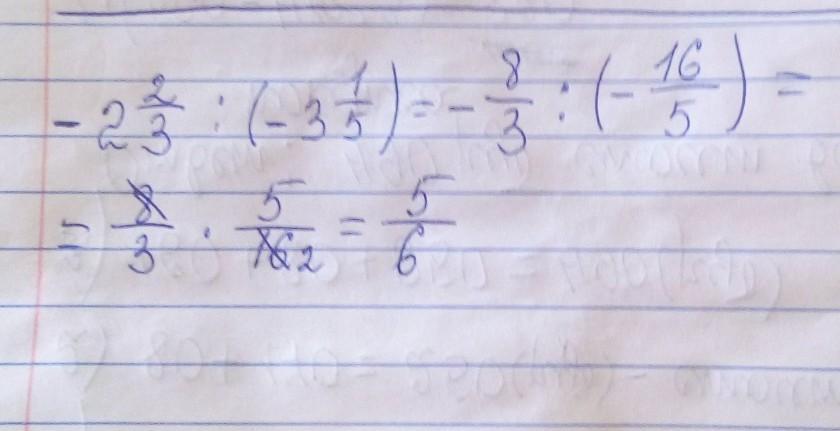 - 2 2/3 : (- 3 1/5) = - 8/3 : (- 16/5) =
= 8/3 · 5/16 2 = 5/6